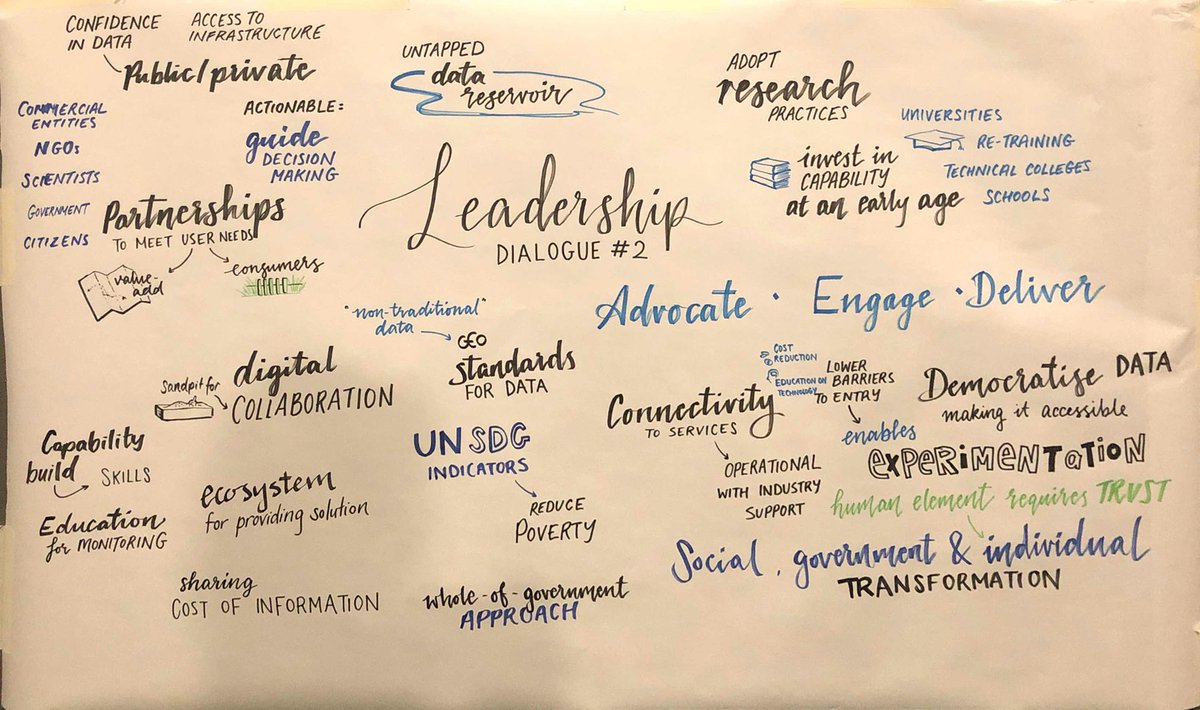 CONFIDENCE
IN DATA
ACCESS TO
INFRASTRUCTURE
Public/private
UNTAPPED
data
reservoir
ADOPT
research
PRACTICES
COMMERCIAL
ENTITIES
NGOs
SCIENTISTS
GOVERNMENT
CITIZENS
ACTIONABLE:
guide
DECISION
MAKING
Partnerships
TO MEET USER NEEDS
value-
add
consumers
Leadership
DIALOGUE #2
invest in
CAPABILITY
at an early age
UNIVERSITIES
RE-TRAINING
TECHNICAL COLLEGES
SCHOOLS
Advocate · Engage · Deliver
"non-traditional"
data
GEO
standards
FOR DATA
Sandpit for
digital
COLLABORATION
Capability
build
SKILLS
Education
for MONITORING
ecosystem
for providing solution
sharing
COST OF INFORMATION
UN SDG
INDICATORS
REDUCE
POVERTY
whole-of-government
APPROACH
Connectivity
TO SERVICES
OPERATIONAL
WITH INDUSTRY
SUPPORT
COST
REDUCTION
EDUCATION ON
TECHNOLOGY
LOWER
BARRIERS
TO ENTRY
enables
Democratise DATA
making it accessible
EXPERIMENTATION
human element requires TRUST
Social, government & individual
TRANSFORMATION